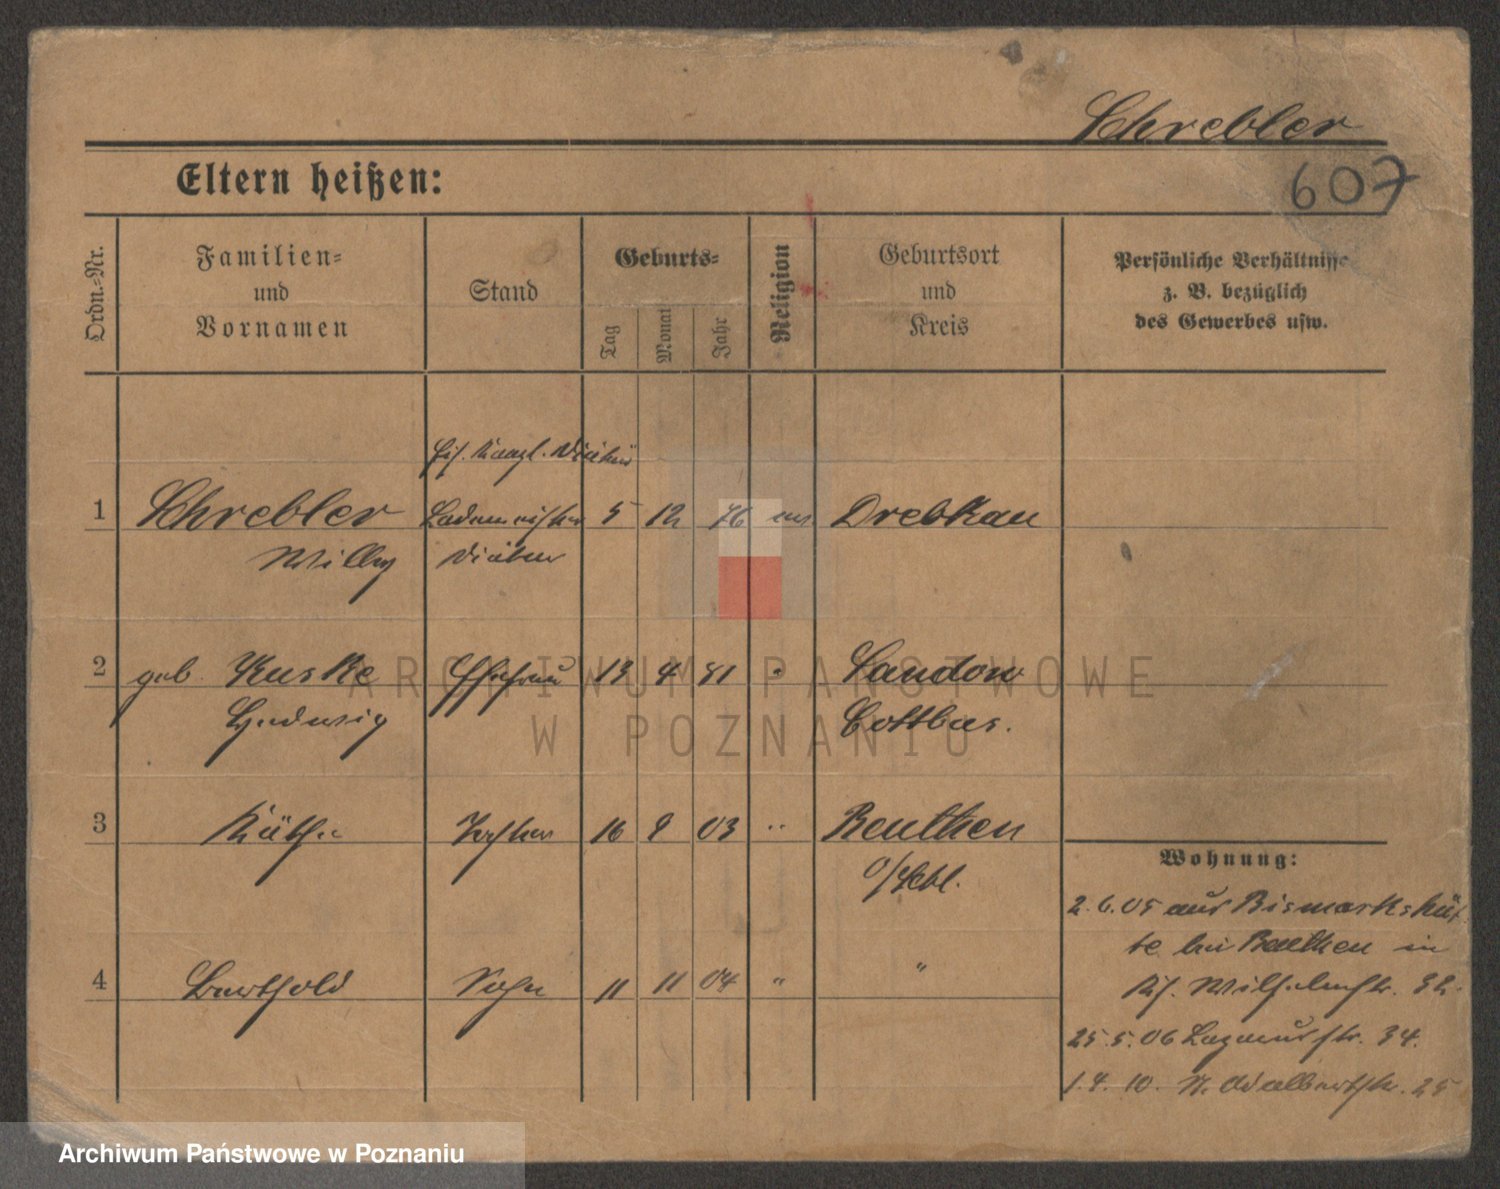 Schrebler
607
Eltern heißen:
Ordn.-Nr.
Familien-
und
Vornamen
Stand
Geburts-
Tag
Monat
Jahr
Religion
Geburtsort
und
Kreis
Persönliche Verhältnisse
z. B. bezüglich
des Gewerbes usw.
Eis. Kanzl. Diätar
1 Schrebler Lademeister 5 12 76 ev Drebkau
Willy Diätar
2 geb. Kuske Ehefrau 13 4 81 " Sandow
Hedwig Cottbus.
3 Käthe Tochter 16 9 03 " Beuthen
O/Schl.
4 Berthold Sohn 11 11 04 " "
Wohnung:
2.6.05 aus Bismarkshüt
te bei Beuthen in
Wilhelmstr. 32.
25.5.06 Lazarusstr. 34.
1.4.10. N. Adalbertstr. 25
ARCHIWUM PAŃSTWOWE
W POZNANIU
Archiwum Państwowe w Poznaniu